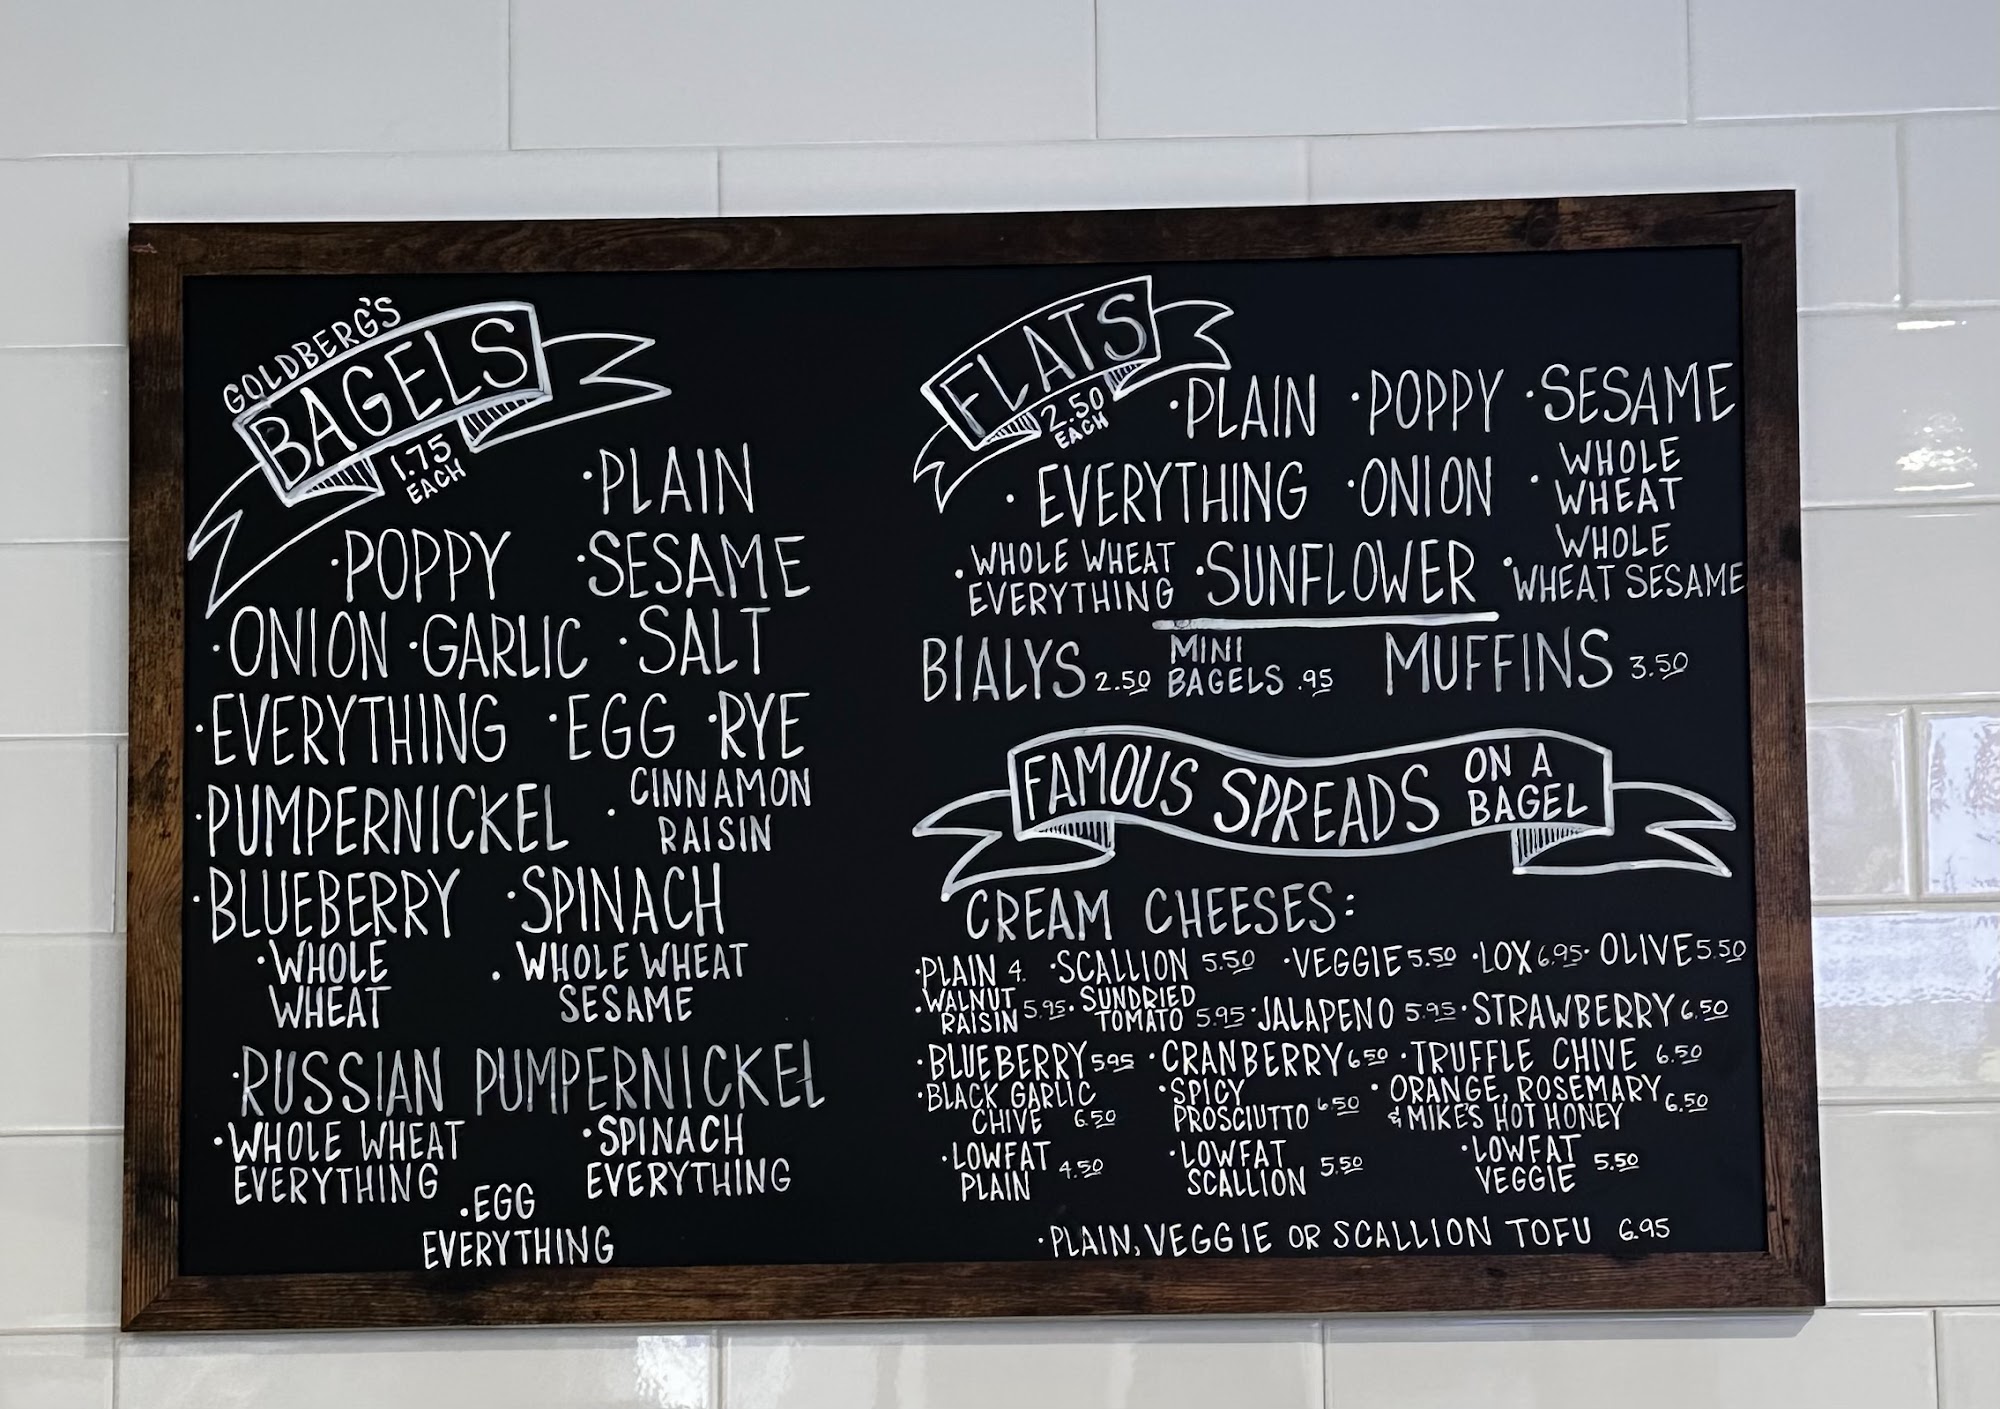 GOLDBERG'S
BAGELS
1.75
EACH
·PLAIN
·POPPY ·SESAME
·ONION ·GARLIC ·SALT
·EVERYTHING ·EGG ·RYE
·PUMPERNICKEL · CINNAMON
RAISIN
·BLUEBERRY ·SPINACH
·WHOLE
WHEAT
· WHOLE WHEAT
SESAME
·RUSSIAN PUMPERNICKEL
·WHOLE WHEAT
EVERYTHING
·SPINACH
EVERYTHING
·EGG
EVERYTHING
FLATS
2.50
EACH
·PLAIN ·POPPY ·SESAME
· EVERYTHING ·ONION · WHOLE
WHEAT
·WHOLE WHEAT
EVERYTHING
·SUNFLOWER
· WHOLE
WHEAT SESAME
BIALYS 2.50 MINI
BAGELS .95
MUFFINS 3.50
FAMOUS SPREADS ON A
BAGEL
CREAM CHEESES:
·PLAIN 4. ·SCALLION 5.50 ·VEGGIE 5.50 ·LOX 6.95 ·OLIVE 5.50
·WALNUT
RAISIN 5.95
·SUNDRIED
TOMATO 5.95
·JALAPENO 5.95 ·STRAWBERRY 6.50
·BLUEBERRY 5.95 ·CRANBERRY 6.50 ·TRUFFLE CHIVE 6.50
·BLACK GARLIC
CHIVE 6.50
·SPICY
PROSCIUTTO 6.50
·ORANGE, ROSEMARY
& MIKE'S HOT HONEY 6.50
·LOWFAT
PLAIN 4.50
·LOWFAT
SCALLION 5.50
·LOWFAT
VEGGIE 5.50
·PLAIN, VEGGIE OR SCALLION TOFU 6.95